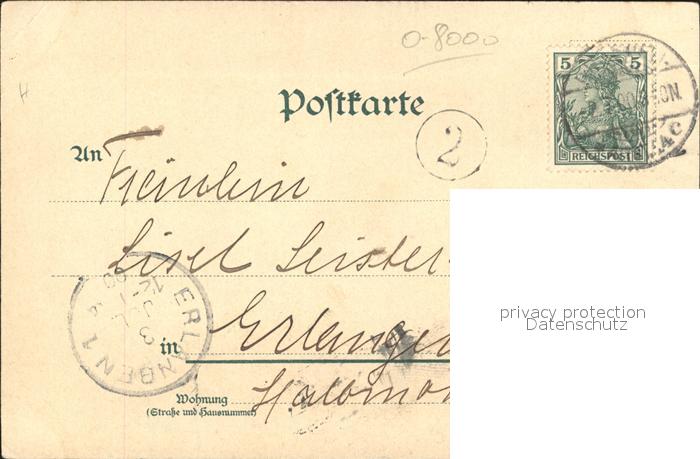 0-8000
5 5
Postkarte
REICHSPOST
2
An Fräulein
Lisel Leister
privacy protection
Datenschutz
ERLANGEN 1
12 JUL 00
in Erlangen
Wohnung
(Straße und Hausnummer)